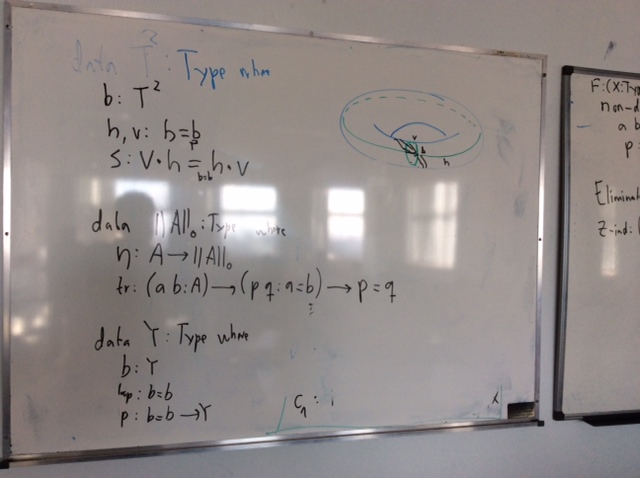 data T² : Type where
b : T²
h, v : b = b
s : v · h = h · v
b=b
v
b
h
data ||A||₀ : Type where
η : A → ||A||₀
tr : (a b : A) → (p q : a = b) → p = q
data Y : Type where
b : Y
lsp : b = b
p : b = b → Y
C₁ :
F : (X : Typ
non-d
a b
p :
Eliminat
Z-ind : (